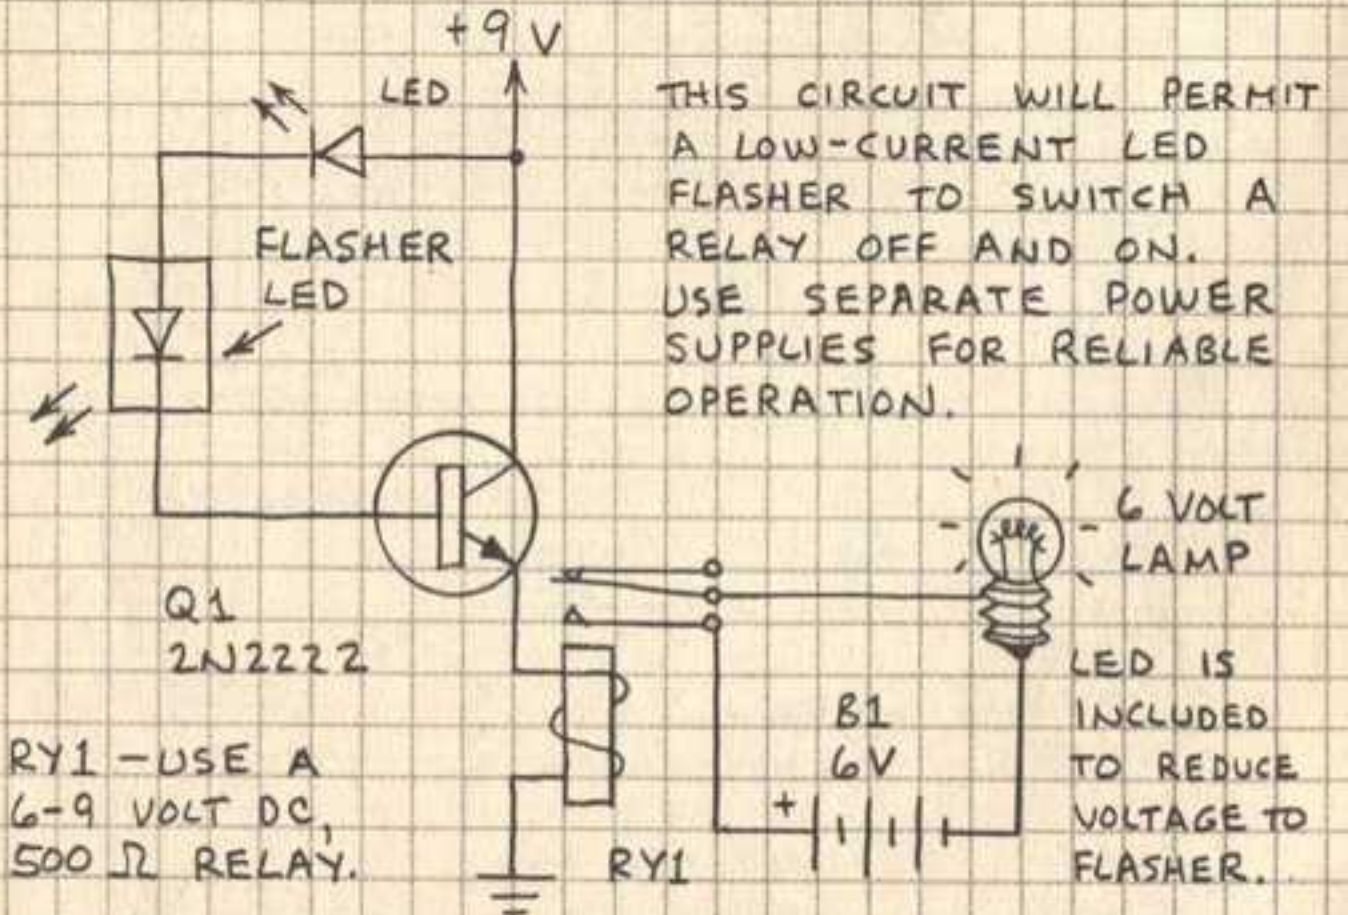 +9 V
LED
THIS CIRCUIT WILL PERMIT
A LOW-CURRENT LED
FLASHER TO SWITCH A
RELAY OFF AND ON.
USE SEPARATE POWER
SUPPLIES FOR RELIABLE
OPERATION.
FLASHER
LED
6 VOLT
LAMP
Q1
2N2222
LED IS
INCLUDED
TO REDUCE
VOLTAGE TO
FLASHER.
B1
6V
+
RY1 - USE A
6-9 VOLT DC,
500 Ω RELAY.
RY1